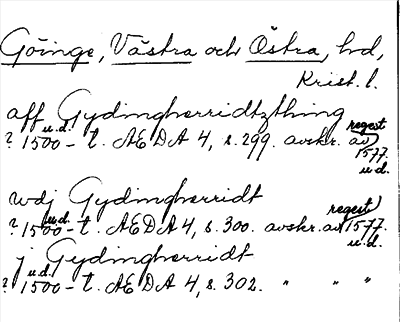 Göinge, Västra och Östra, hd,
Krist. l.
aff Gydingherridtzthing
u.d. regest
? 1500-t. AEDA 4, s. 299. avskr. av
1577.
u.d.
wdj Gydingherridt
u.d. regest
? 1500-t. AEDA 4, s. 300. avskr. av 1577.
u.d.
j Gydingherridt
u.d.
? 1500-t. AEDA 4, s. 302. " " "